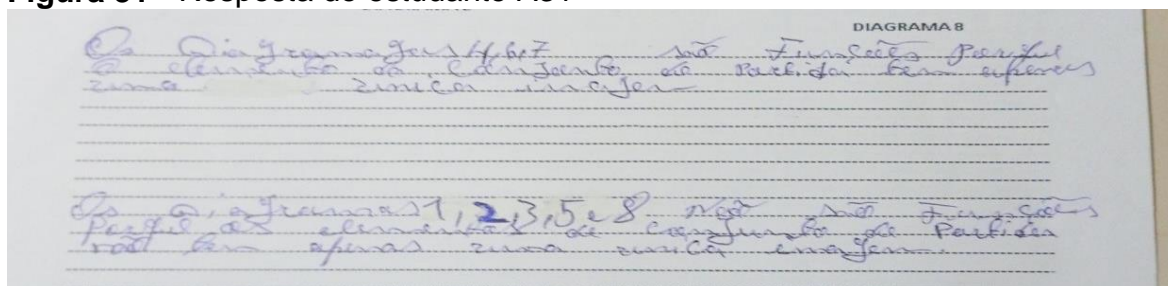 DIAGRAMA 8
Os Diagramas 4,6,7 são Funções Porque
o elemento do Conjunto de Partida tem apenas
uma unica imagem
Os Diagramas 1,2,3,5 e 8 não são Funções
Porque os elementos de conjunto de Partida
não tem apenas uma unica imagem.